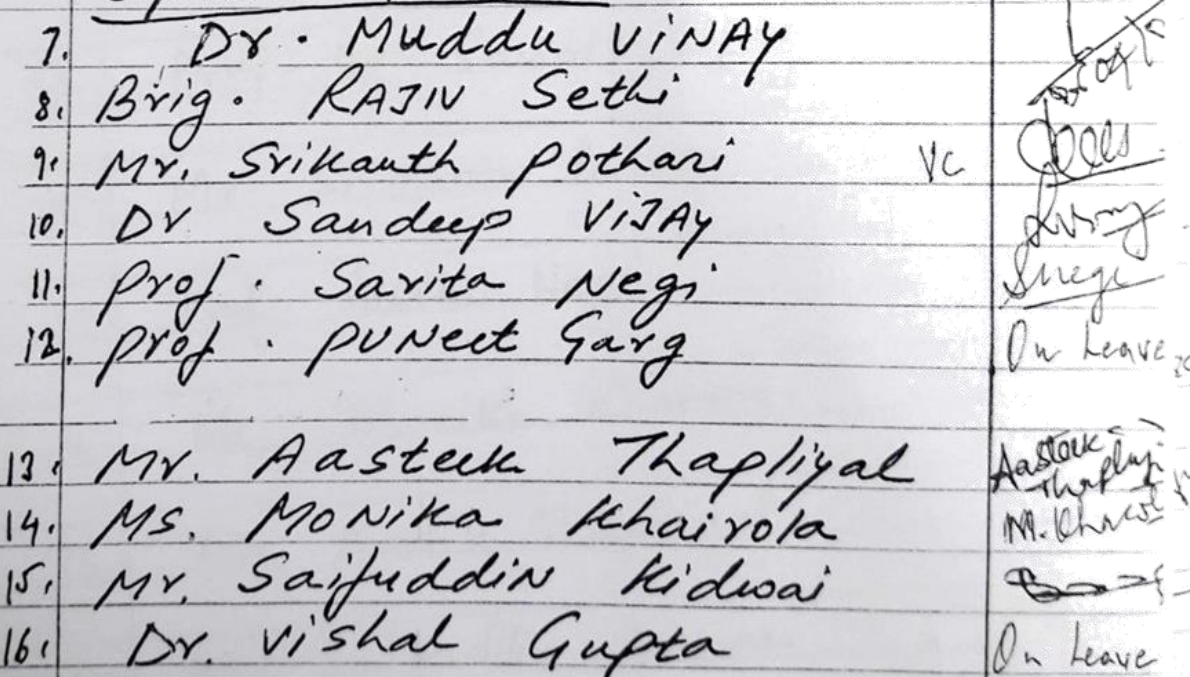 7. Dr. Muddu ViNAY
8. Brig. RAJIV Sethi
9. Mr. Srikanth Pothari VC
10. Dr Sandeep ViJAY
11. Prof. Sarita Negi Snegi
12. Prof. PUNeet Garg On Leave
13. Mr. Aasteek Thapliyal Aasteek
14. Ms. MoNika Khairola
15. Mr. SaifuddiN Kidwai
16. Dr. Vishal Gupta On Leave